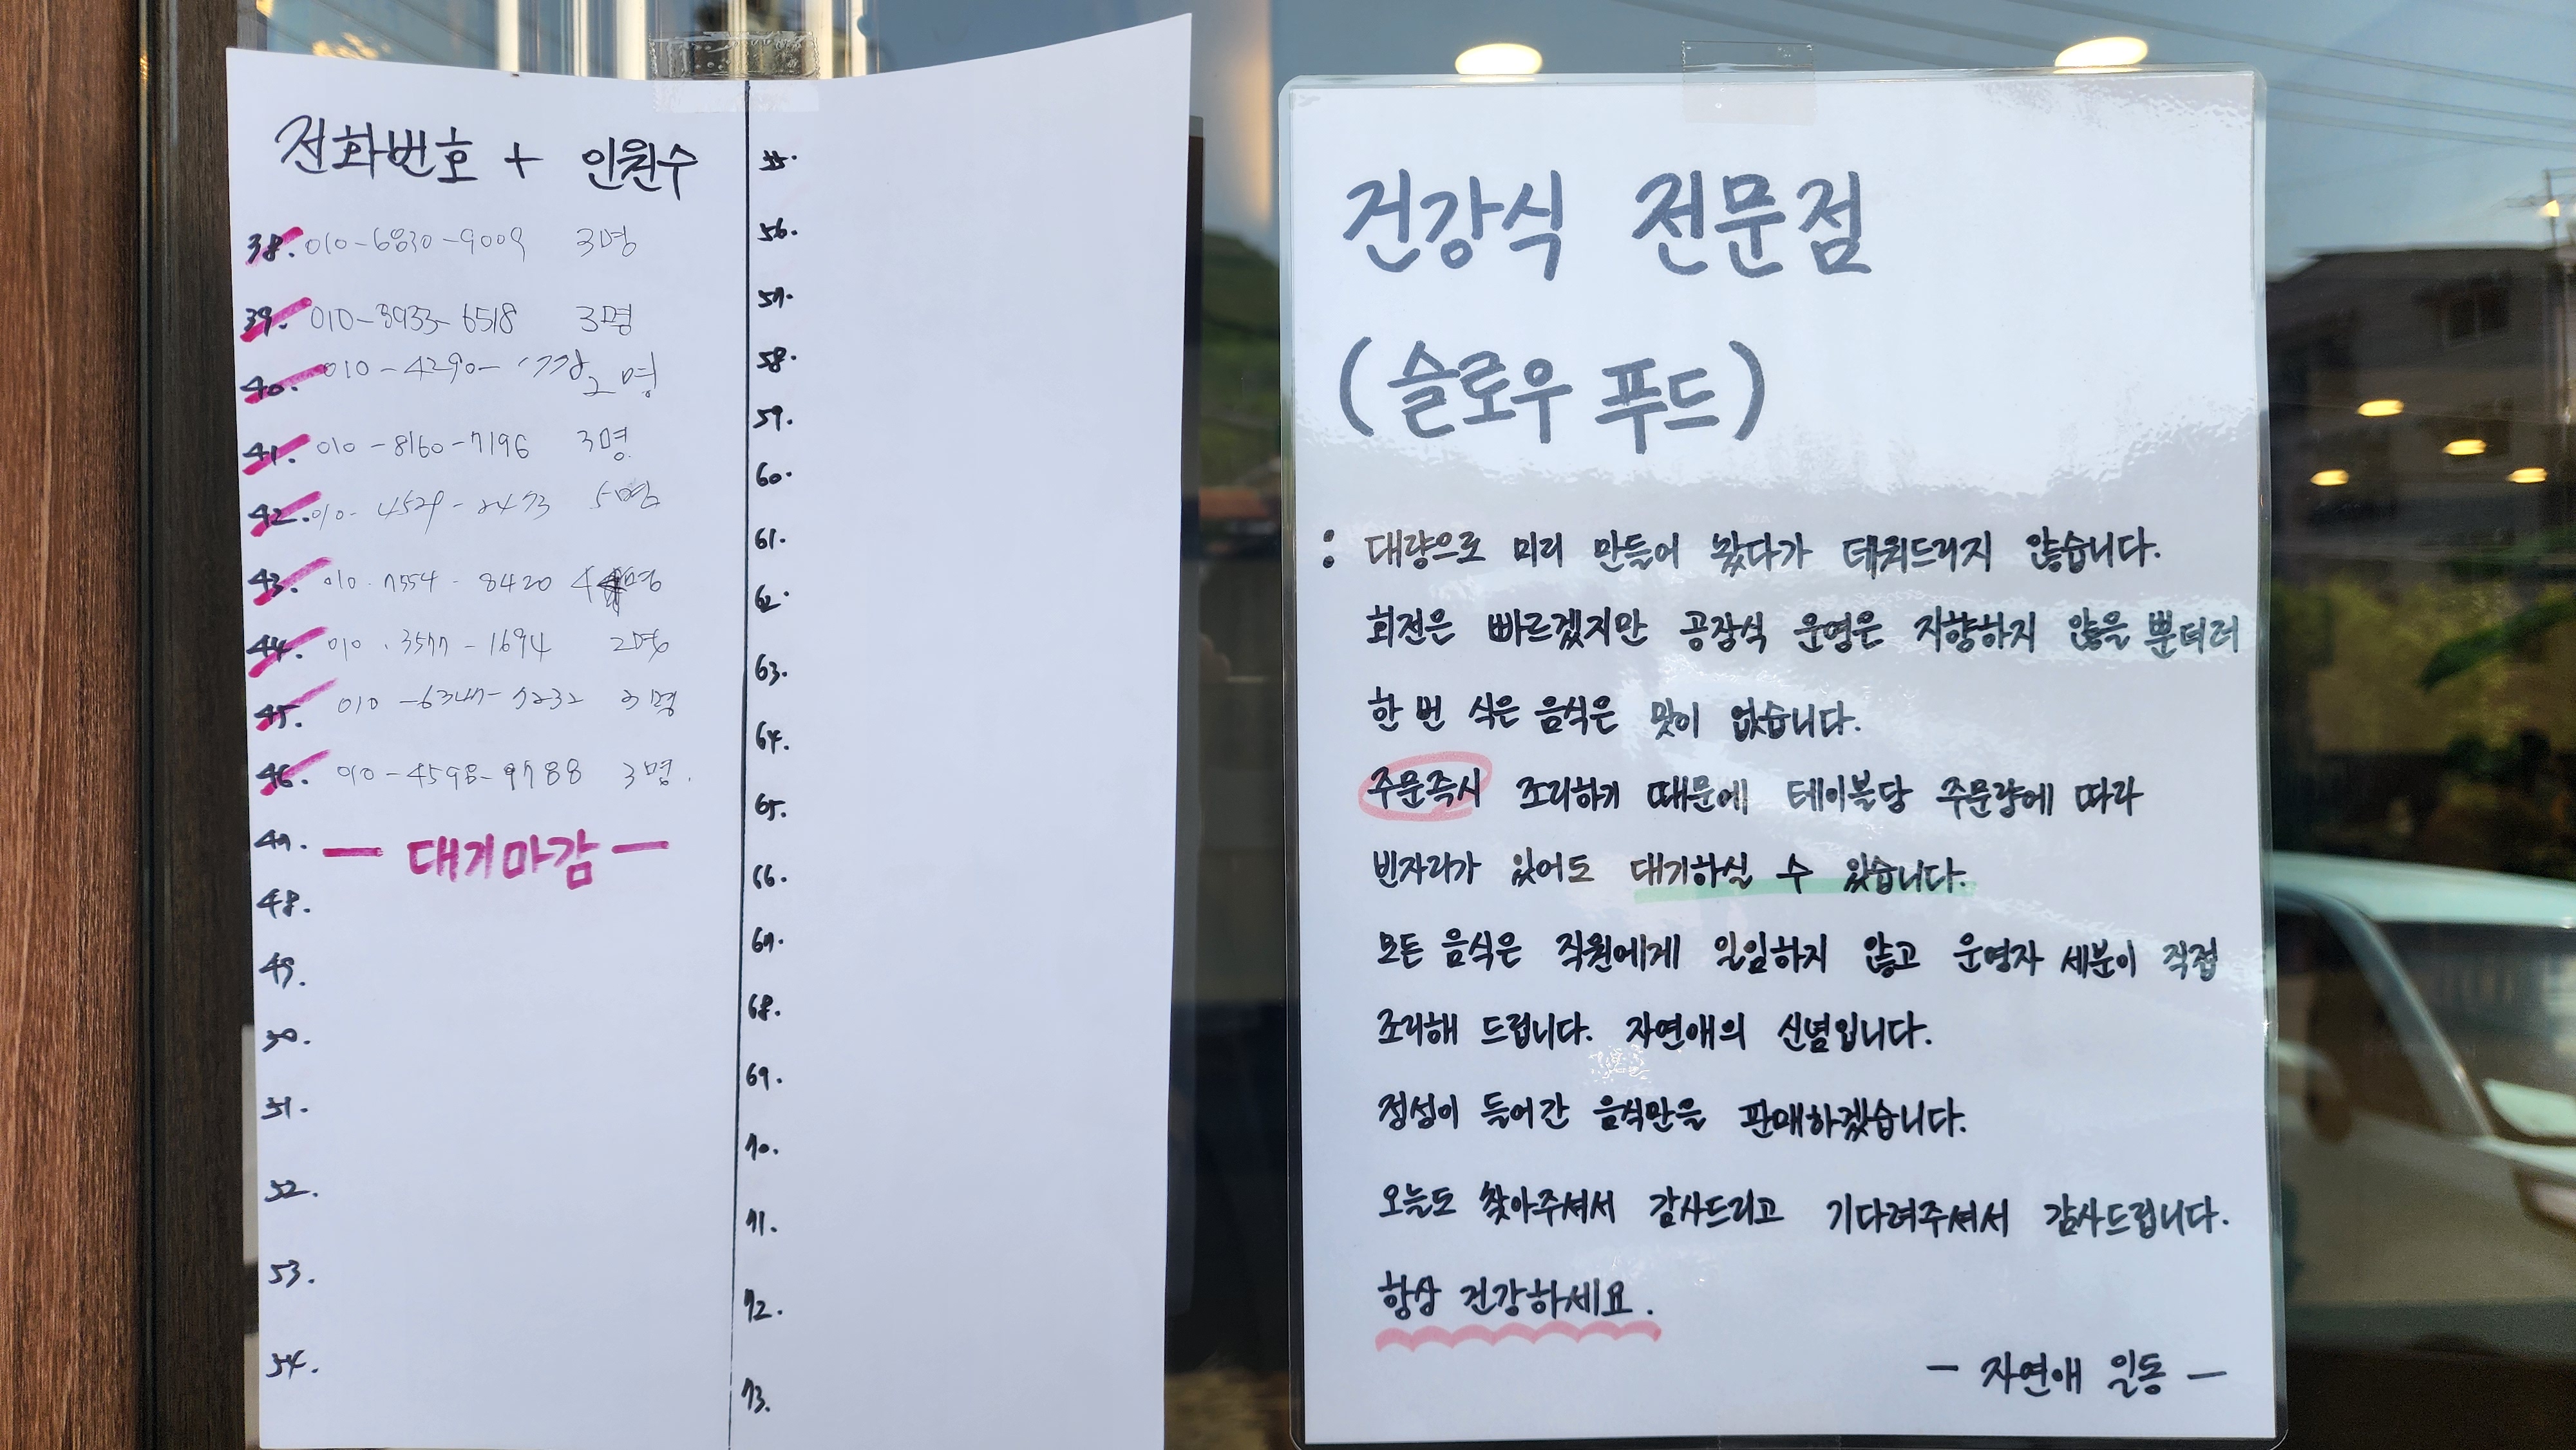 전화번호 + 인원수
38. 010-6830-9009 3명
39. 010-3933-6518 3명
40. 010-4290- 2명
41. 010-8160-7196 3명
42. 010- 4529- 2473 5명
43. 010. 7554 - 8420 4명
44. 010 . 3577 - 1694 2명
45. 010 -6347- 5232 3명
46. 010-4598-9788 3명.
47. — 대기마감 —
48.
49.
50.
51.
52.
53.
54.
55.
56.
57.
58.
59.
60.
61.
62.
63.
64.
65.
66.
67.
68.
69.
70.
71.
72.
73.
건강식 전문점
(슬로우 푸드)
: 대량으로 미리 만들어 놨다가 데워드리지 않습니다.
회전은 빠르겠지만 공장식 운영은 지향하지 않을 뿐더러
한 번 식은 음식은 맛이 없습니다.
주문즉시 조리하기 때문에 테이블당 주문량에 따라
빈자리가 있어도 대기하실 수 있습니다.
모든 음식은 직원에게 일임하지 않고 운영자 세분이 직접
조리해 드립니다. 자연애의 신념입니다.
정성이 들어간 음식만을 판매하겠습니다.
오늘도 찾아주셔서 감사드리고 기다려주셔서 감사드립니다.
항상 건강하세요.
— 자연애 일동 —